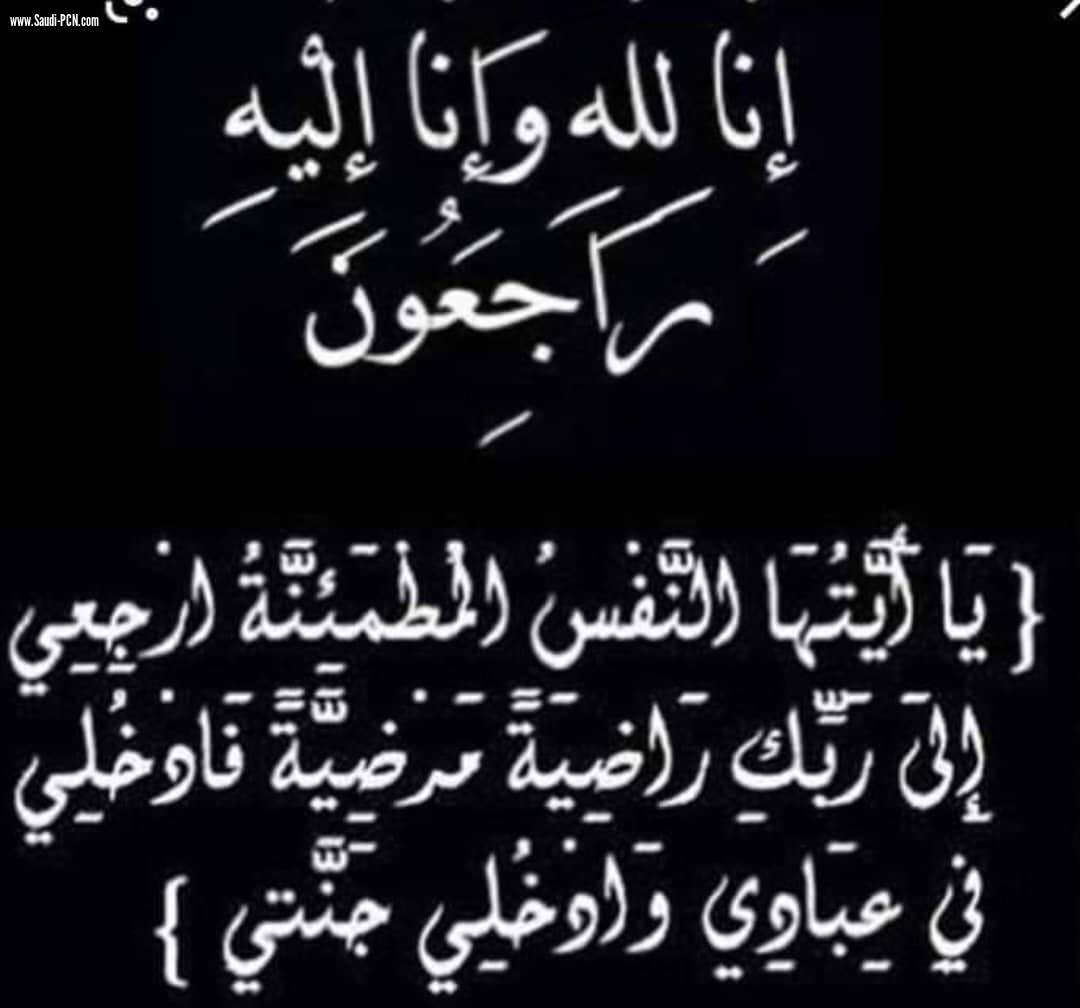 www.Saudi-PCN.com
إنا لله وَإنا إليْهِ
رَاجِعُونَ
{ يَا أَيَّتُهَا النَّفْسُ المُطْمَئِنَّةُ ارْجِعِي
إِلَى رَبِّكِ رَاضِيَةً مَرْضِيَّةً فَادْخُلِي
فِي عِبَادِي وَادْخُلِي جَنَّتِي }